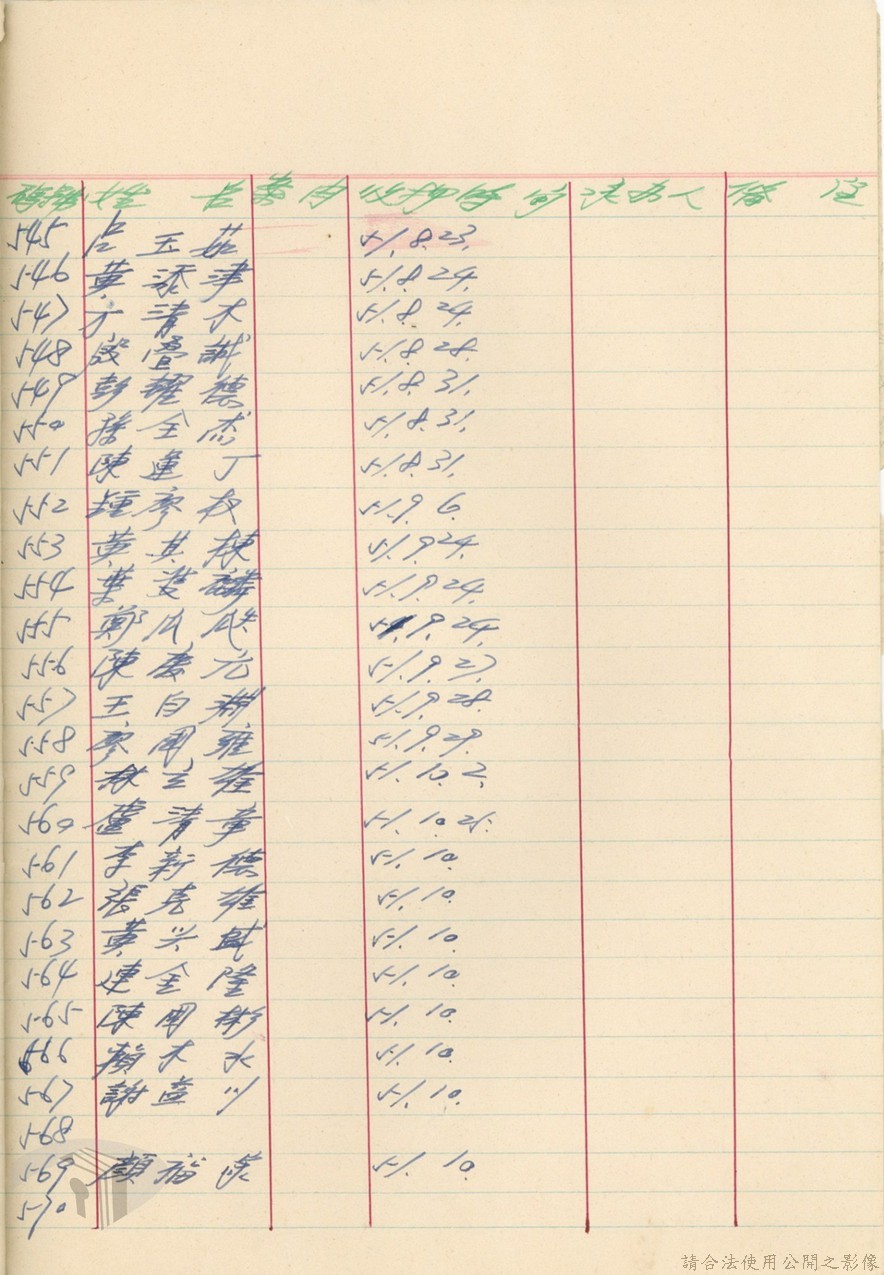 號 姓 名 案由 收押時間 承办人 備注
545 呂玉茹 51.8.23.
546 黃添津 51.8.24.
547 方清木 51.8.24.
548 誠 51.8.28.
549 彭耀德 51.8.31.
550 孫全杰 51.8.31.
551 陳連丁 51.8.31.
552 鍾廖权 51.9.6.
553 黃其棟 51.9.24.
554 葉 麟 51.9.24.
555 鄭 51.9.24.
556 陳慶元 51.9.27.
557 王白淵 51.9.28.
558 廖國雄 51.9.29.
559 林立雄 51.10.2.
560 盧清章 51.10.25.
561 李新德 51.10.
562 張克雄 51.10.
563 黃兴斌 51.10.
564 連金隆 51.10.
565 陳國彬 51.10.
566 賴木水 51.10.
567 謝益川 51.10.
568
569 顏福 51.10.
570
請合法使用公開之影像